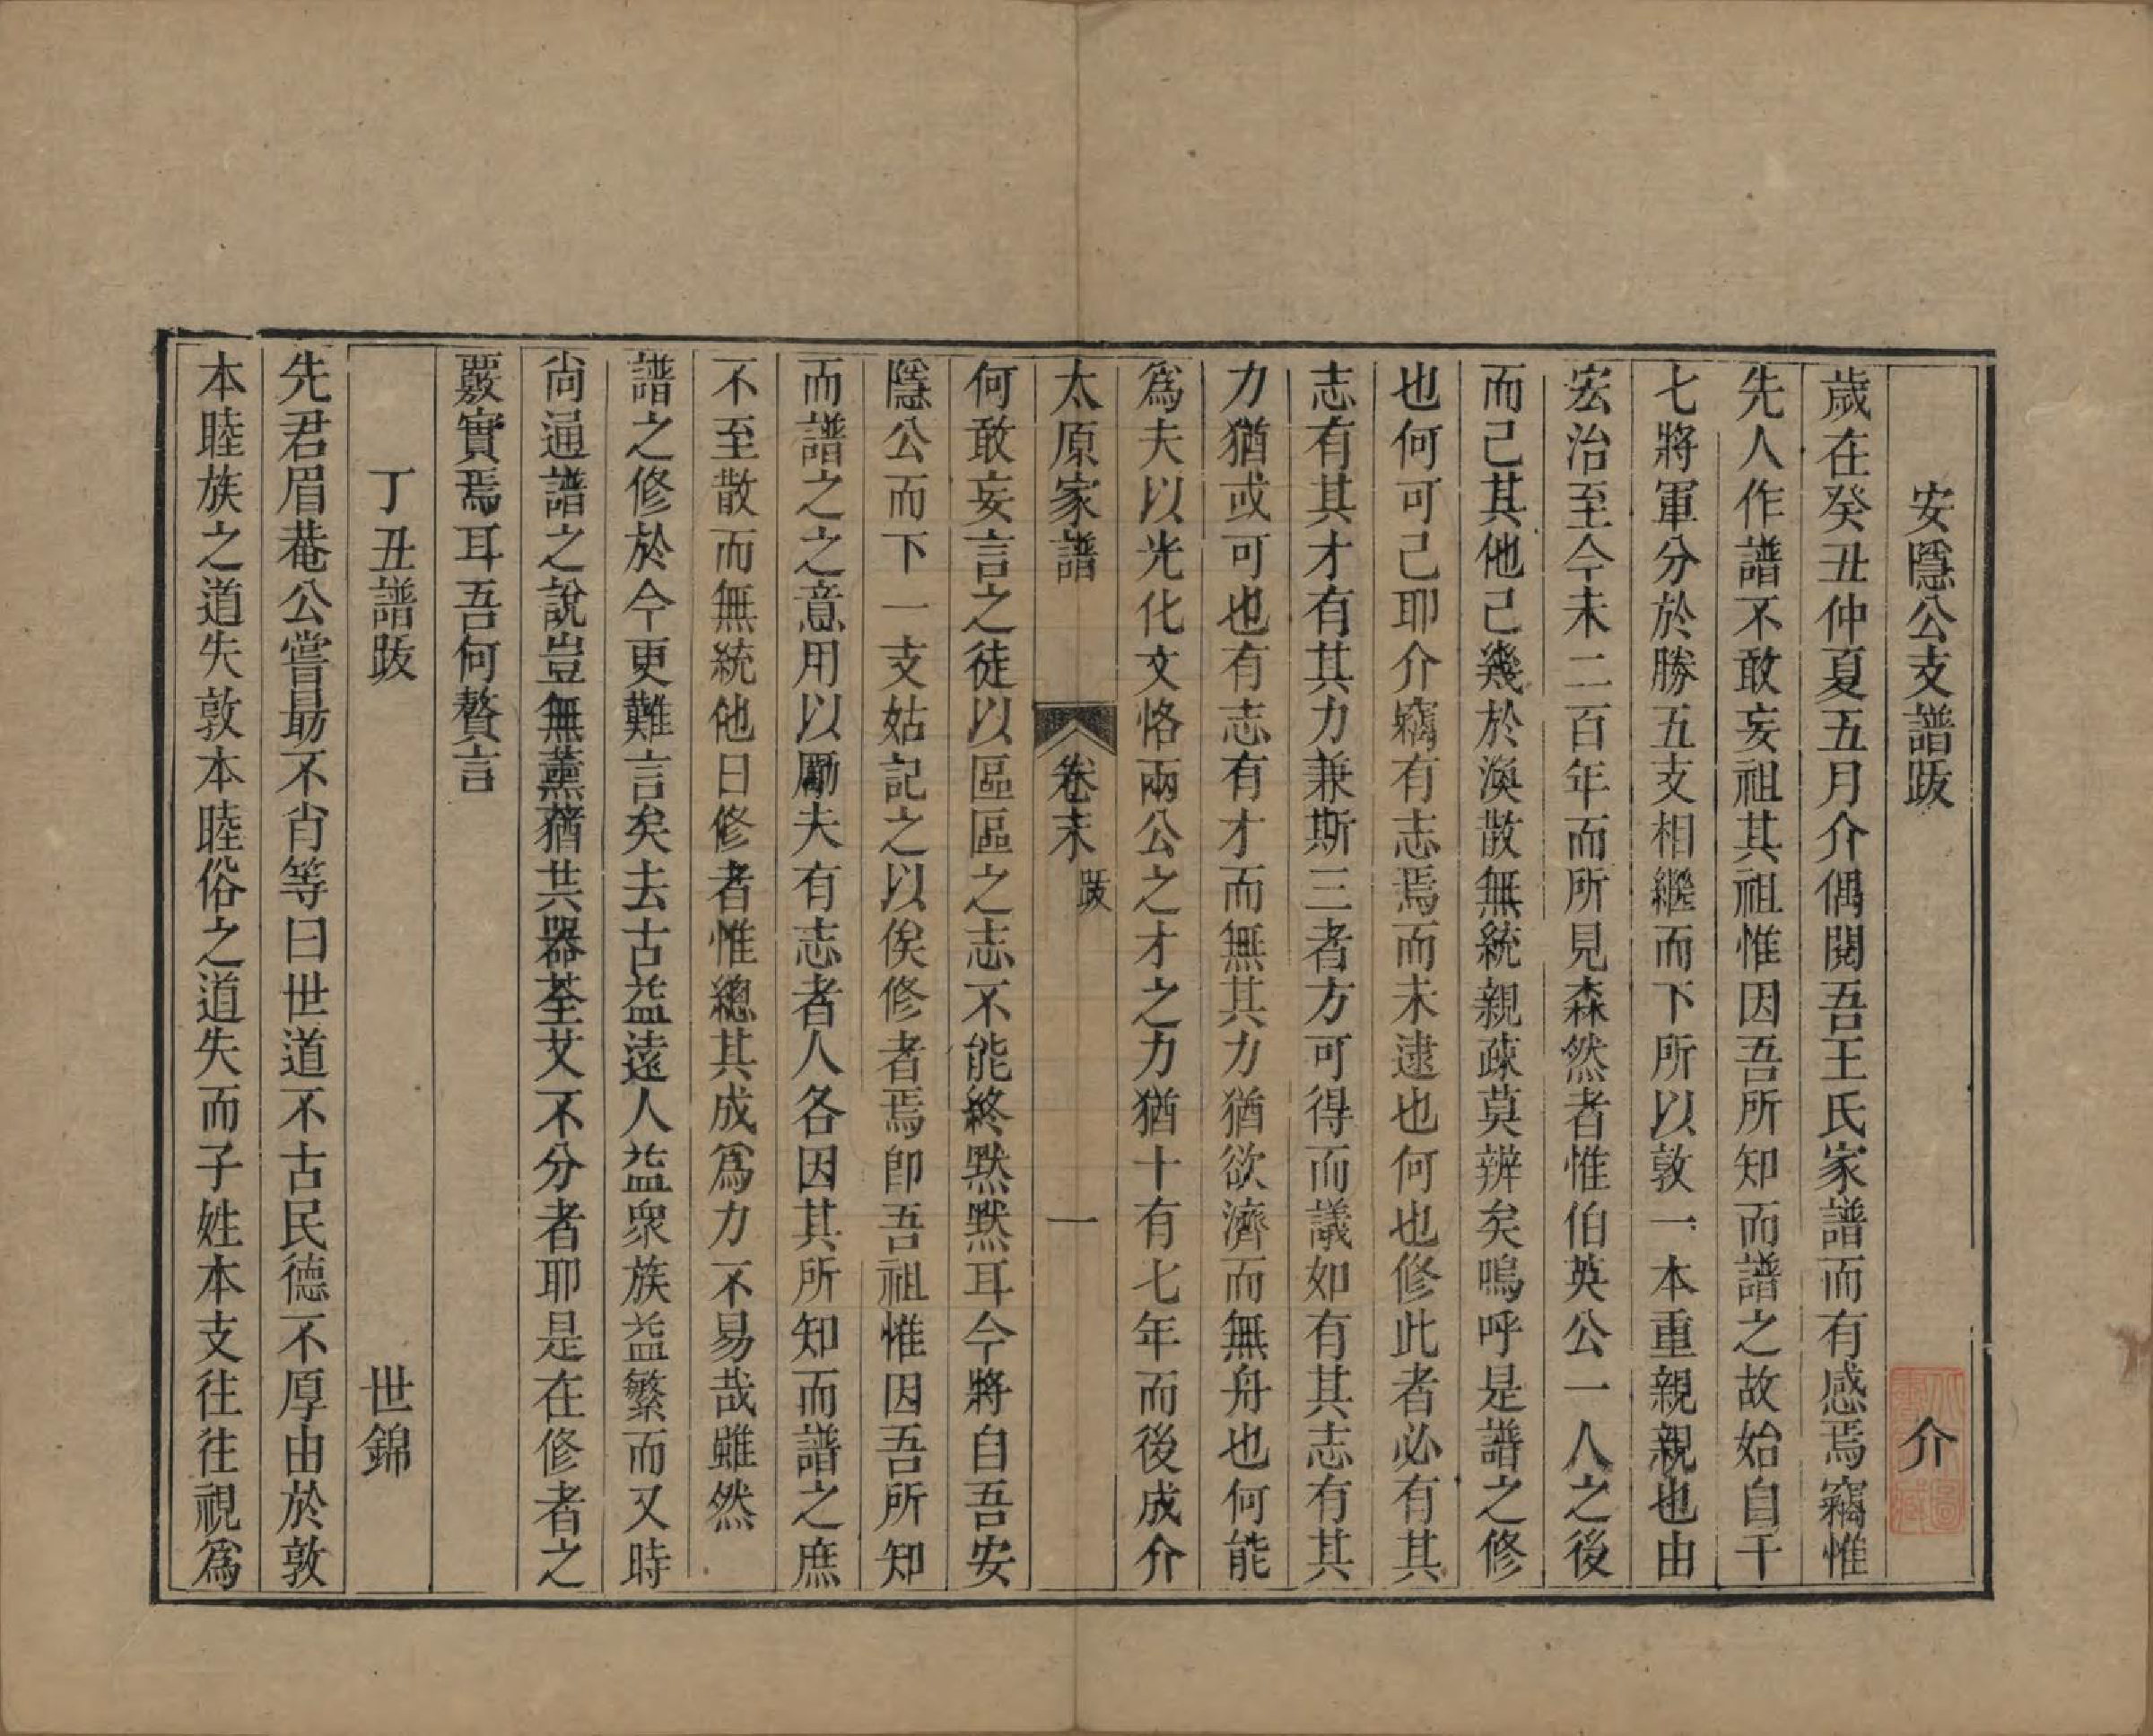 安隱公支譜跋　介
歲在癸丑仲夏五月介偶閱吾王氏家譜而有感焉竊惟
先人作譜不敢妄祖其祖惟因吾所知而譜之故始自千
七將軍分於勝五支相繼而下所以敦一本重親親也由
宏治至今未二百年而所見森然者惟伯英公一人之後
而己其他己幾於渙散無統親疎莫辨矣嗚呼是譜之修
也何可己耶介竊有志焉而未逮也何也修此者必有其
志有其才有其力兼斯三者方可得而議如有其志有其
力猶或可也有志有才而無其力猶欲濟而無舟也何能
爲夫以光化文恪兩公之才之力猶十有七年而後成介
太原家譜　卷末　跋　一
何敢妄言之徒以區區之志不能終默默耳今將自吾安
隱公而下一支姑記之以俟修者焉卽吾祖惟因吾所知
而譜之之意用以勵夫有志者人各因其所知而譜之庶
不至散而無統他日修者惟總其成爲力不易哉雖然
譜之修於今更難言矣去古益遠人益衆族益繁而又時
尙通譜之說豈無薰蕕共器荃艾不分者耶是在修者之
覈實焉耳吾何贅言
丁丑譜跋　世錦
先君眉菴公嘗勗不肖等曰世道不古民德不厚由於敦
本睦族之道失敦本睦俗之道失而子姓本支往往視爲